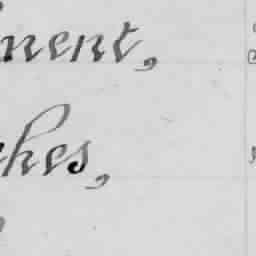 ment,
hes,